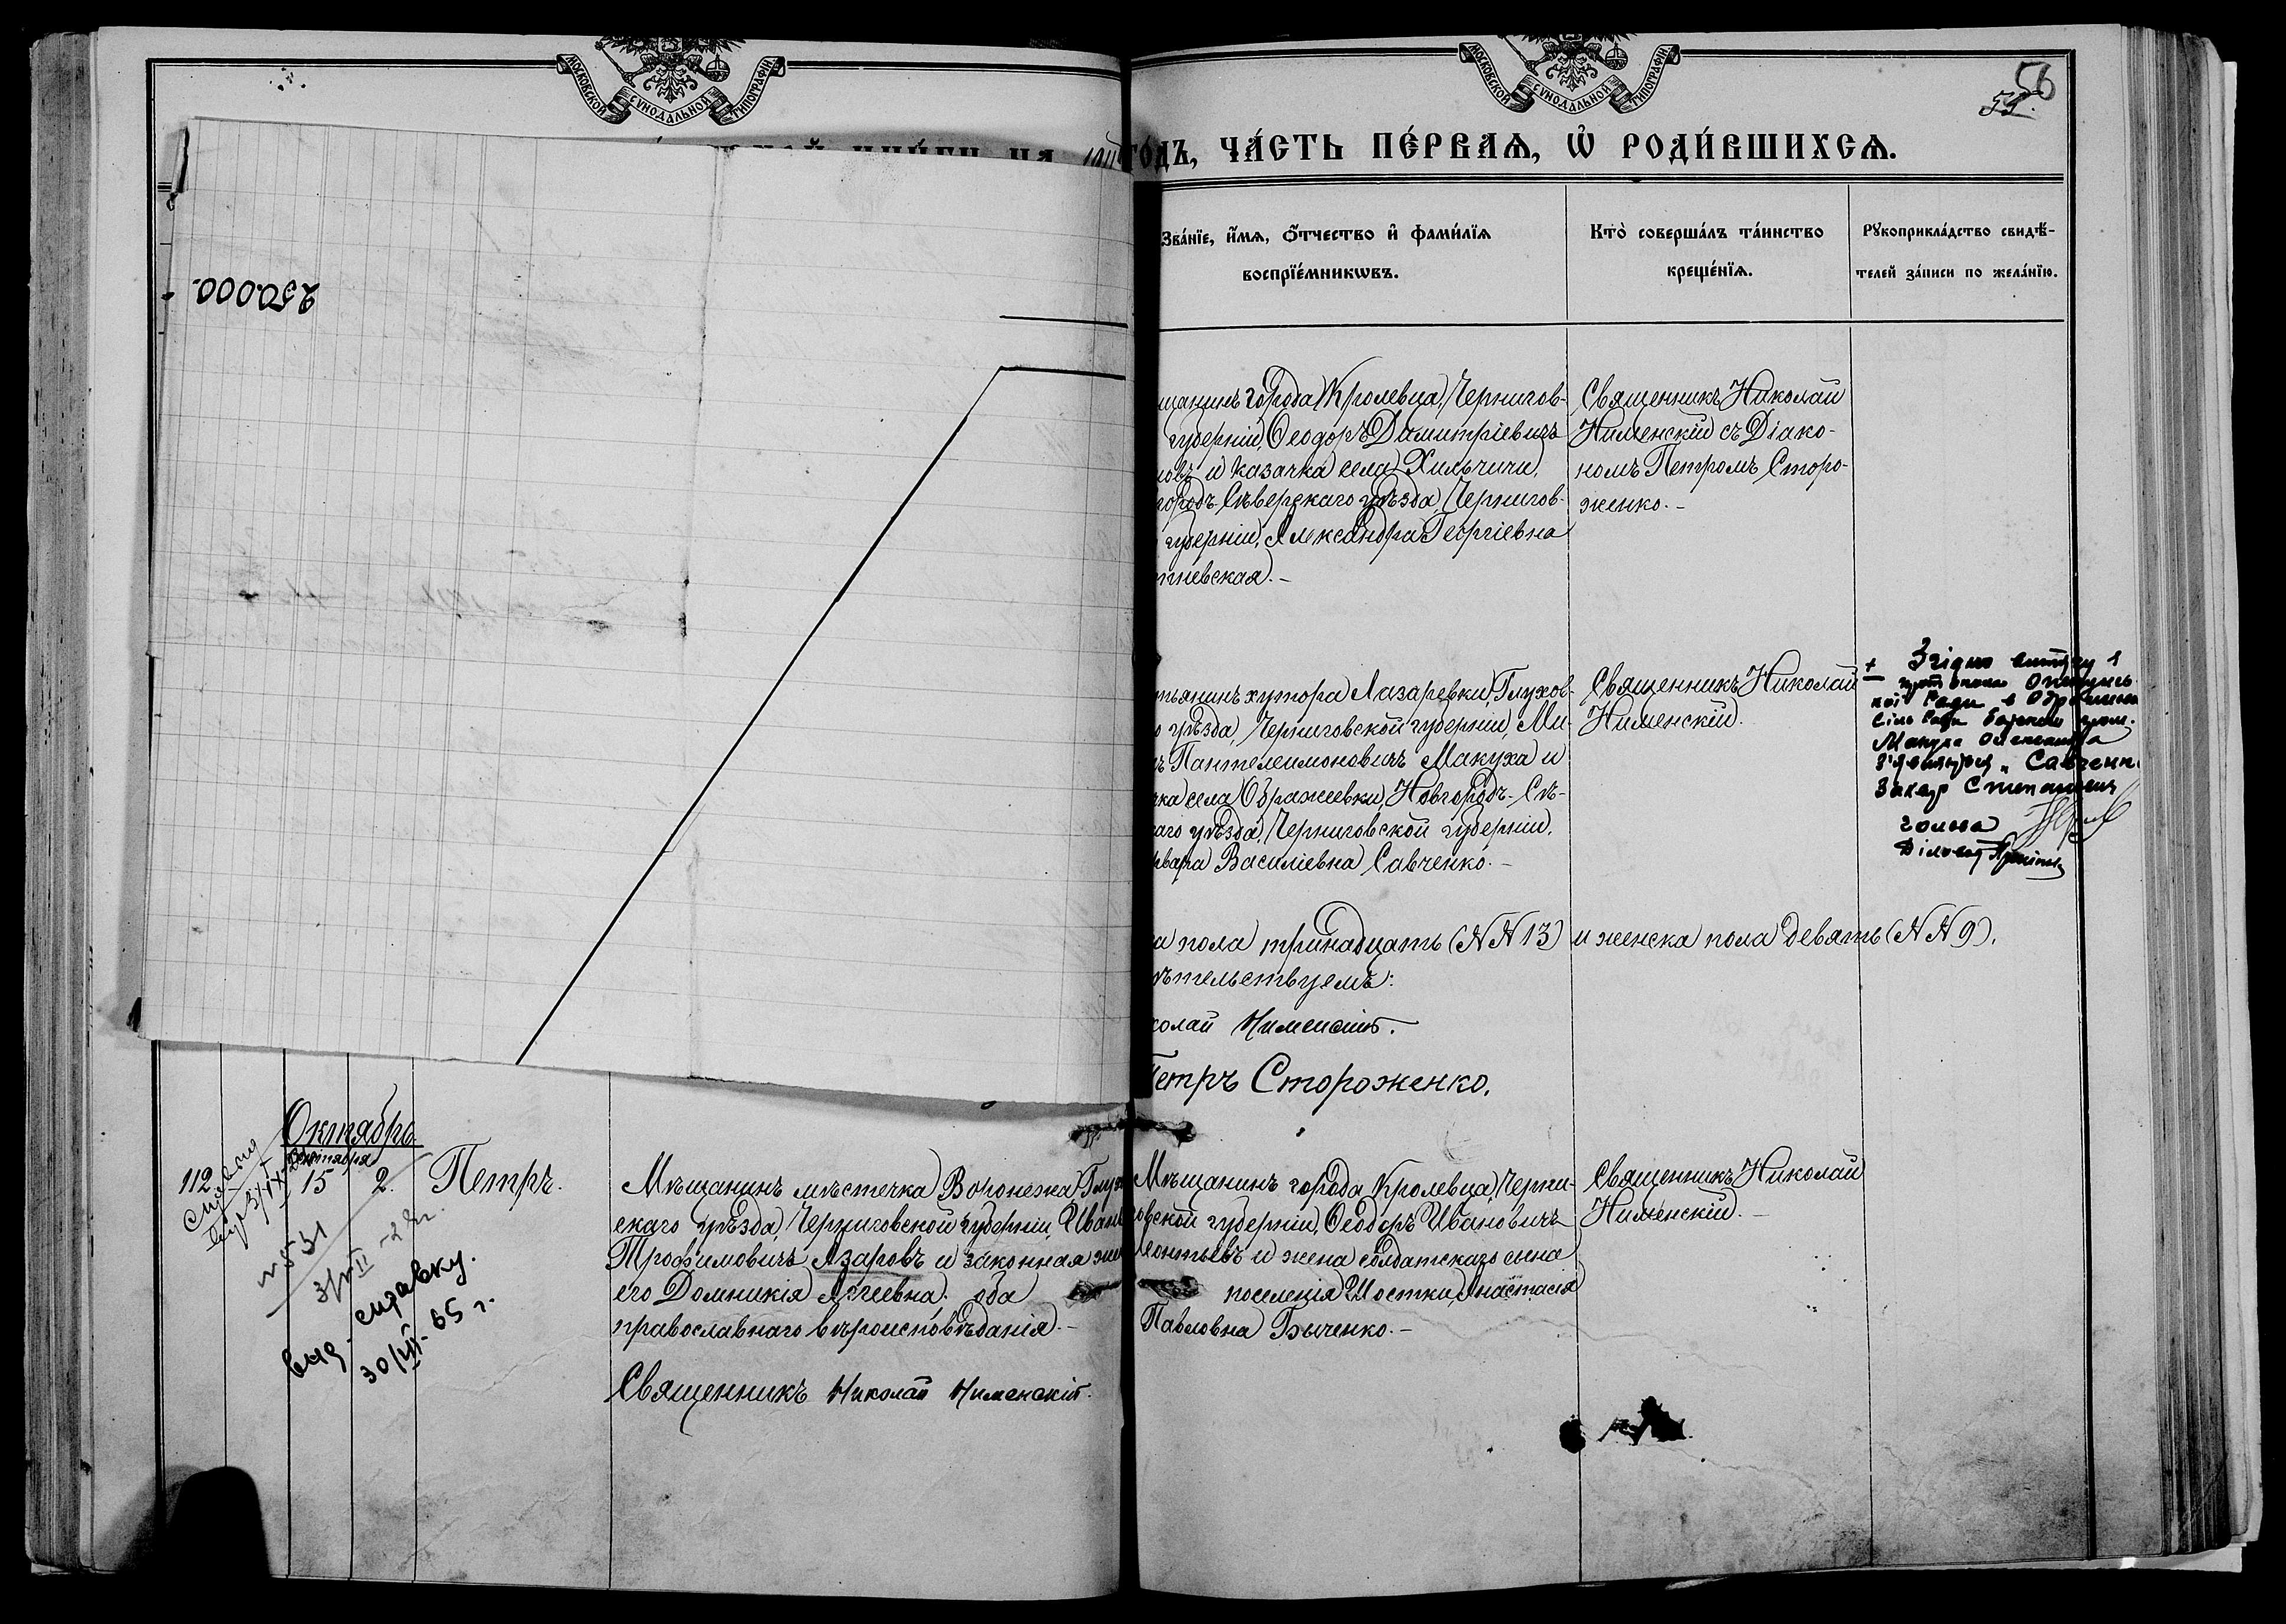 МОСКОВСКОЙ СУНОДАЛЬНОЙ ТИПОГРАФІИ
МОСКОВСКОЙ СУНОДАЛЬНОЙ ТИПОГРАФІИ
56
55.
го́дъ, ча́сть пе́рваѧ, ѡ҆ роди́вшихсѧ.
250.000.
Зва́нїе, и҆́мѧ, ѻ҆́тчество и҆ фами́лїѧ
воспрїе́мникѡвъ.
Кто̀ соверша́лъ та́инство
креще́нїѧ.
Рꙋкоприкла́дство свидѣ́-
телей за́писи по жела́нїю.
щанинъ города Кролевца, Чернигов-
губерніи, Ѳеодоръ Димитріевичъ
новъ и казачка села Хильчичи,
городъ-Сѣверскаго уѣзда, Чернигов-
губерніи, Александра Георгіевна
тневская.-
Священникъ Николай
Нименскій съ Діако-
номъ Петромъ Сторо-
женко.-
тьянинъ хутора Лазаревки, Глухов-
о уѣзда, Черниговской губерніи, Ми-
ъ Пантелеимоновичъ Макуха и
чка села Ображеевки, Новгородъ-Сѣ-
аго уѣзда, Черниговской губерніи,
рвара Василіевна Савченко.-
Священникъ Николай
Нименскій.
+ Згідно витягу з
ради в
Макуха
Савченк
Захар Степанович
голова
Діловод
а пола тринадцать (№№ 13) и женска пола девять (№№ 9).
ѣтельствуемъ:
колай Нименскій.
Петръ Стороженко.
Октябрь
Сентября
112. 15 2. Петръ.
№ 531
вид. справку.
30/VII-65 г.
Мѣщанинъ мѣстечка Воронежа, Глухо
скаго уѣзда, Черниговской губерніи, Иванъ
Трофимовичъ Азаровъ и законная же
его Домникія Агеевна, оба
православнаго вѣроисповѣданія.-
Священникъ Николай Нименскій.
Мѣщанинъ города Кролевца, Черни-
говской губерніи, Ѳеодоръ Ивановичъ
Леонтьевъ и жена солдатскаго сына
поселенія Шостки, Анастасія
Павловна Быченко.-
Священникъ Николай
Нименскій.-